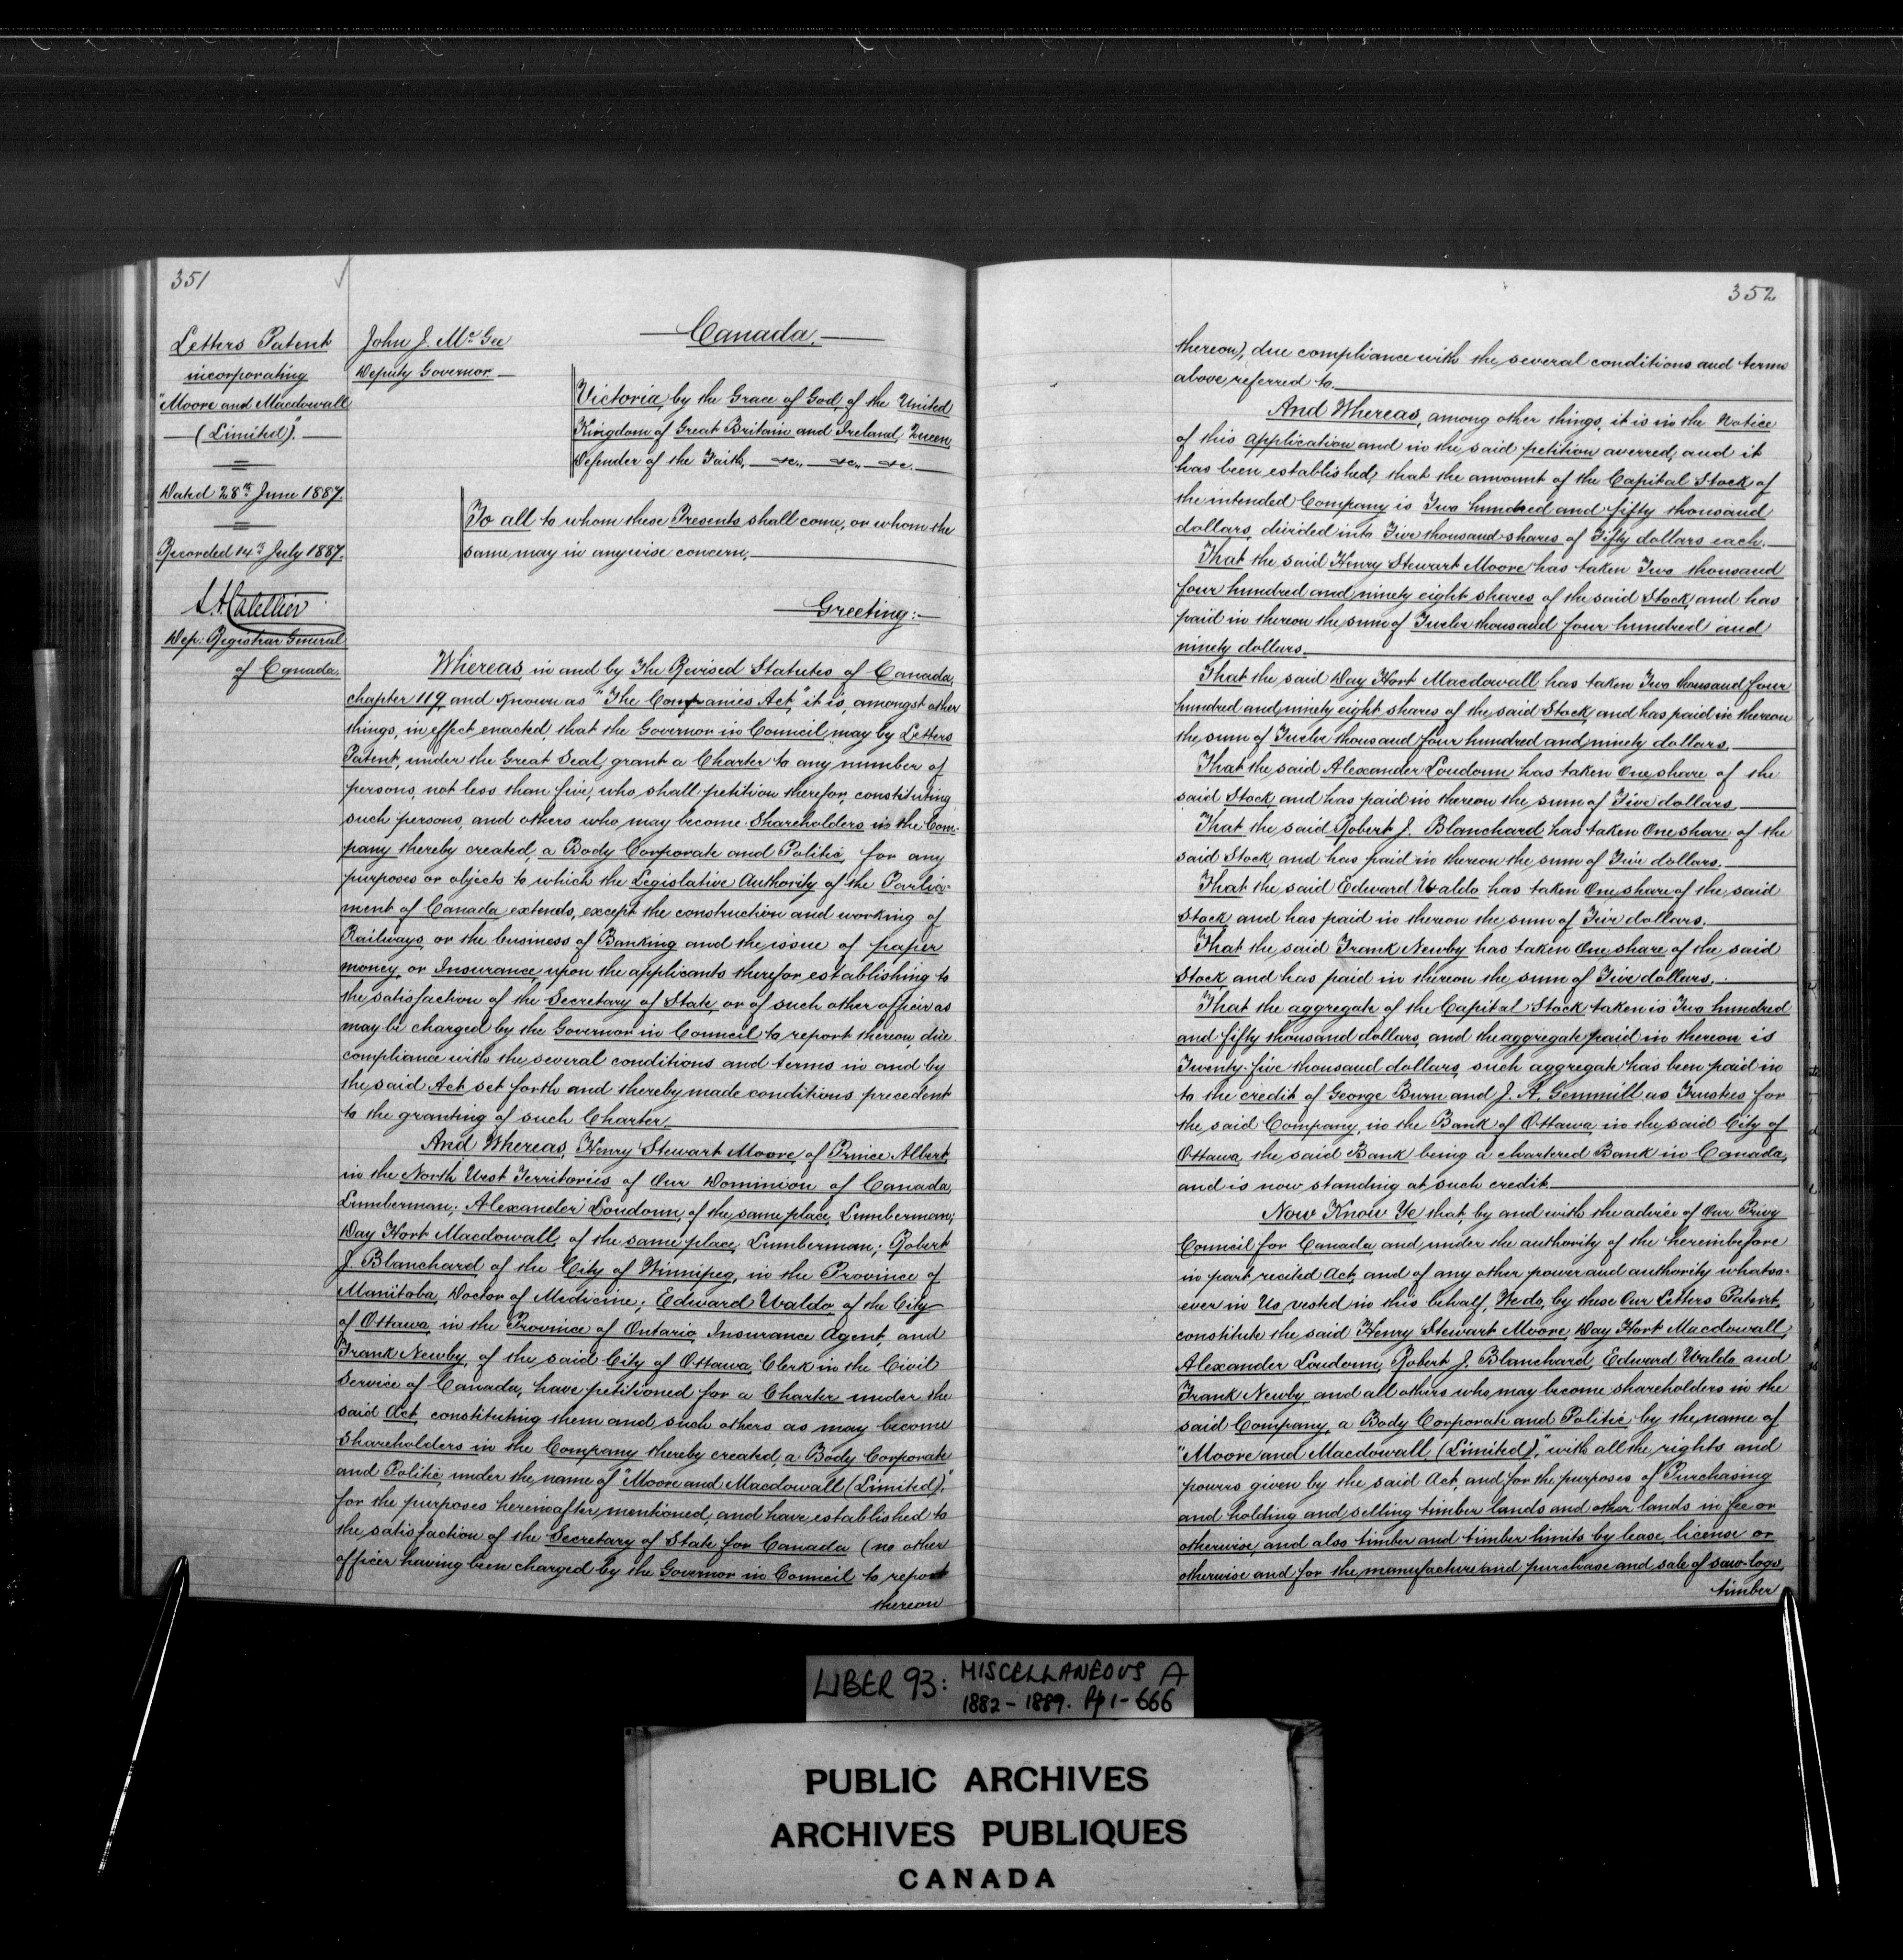 351
Letters Patent
incorporating
"Moore and Macdowall
(Limited)."
Dated 28th June 1887.
Recorded 14th July 1887.
Dep: Registrar General
of Canada.
John J. McGee
Deputy Governor
Canada.
Victoria, by the Grace of God, of the United
Kingdom of Great Britain and Ireland, Queen
Defender of the Faith, &c., &c., &c.
To all to whom these Presents shall come, or whom the
same may in anywise concern,
Greeting:
Whereas, in and by The Revised Statutes of Canada,
chapter 119, and known as "The Companies Act," it is, amongst other
things, in effect enacted, that the Governor in Council may by Letters
Patent, under the Great Seal, grant a Charter to any number of
persons, not less than five, who shall petition therefor, constituting
such persons, and others who may become Shareholders in the Com-
pany thereby created, a Body Corporate and Politic, for any
purposes or objects to which the Legislative Authority of the Parlia-
ment of Canada extends, except the construction and working of
Railways, or the business of Banking and the issue of paper
money, or Insurance upon the applicants therefor establishing to
the satisfaction of the Secretary of State, or of such other officer as
may be charged by the Governor in Council to report thereon, due
compliance with the several conditions and terms in and by
the said Act set forth and thereby made conditions precedent
to the granting of such Charter.
And Whereas, Henry Stewart Moore, of Prince Albert,
in the North West Territories of Our Dominion of Canada,
Lumberman; Alexander Loudoun, of the same place, Lumberman;
Day Hort Macdowall, of the same place, Lumberman; Robert
J. Blanchard of the City of Winnipeg, in the Province of
Manitoba, Doctor of Medicine; Edward Waldo of the City
of Ottawa in the Province of Ontario, Insurance Agent, and
Frank Newby, of the said City of Ottawa, Clerk in the Civil
Service of Canada, have petitioned for a Charter under the
said Act, constituting them and such others as may become
Shareholders in the Company thereby created, a Body Corporate
and Politic, under the name of "Moore and Macdowall (Limited)."
for the purposes hereinafter mentioned, and have established to
the satisfaction of the Secretary of State for Canada (no other
officer having been charged by the Governor in Council to report
thereon
352
thereon), due compliance with the several conditions and terms
above referred to.
And Whereas, among other things, it is in the Notice
of this application and in the said petition averred, and it
has been established, that the amount of the Capital Stock of
the intended Company is Two hundred and fifty thousand
dollars, divided into Five thousand shares of Fifty dollars each.
That the said Henry Stewart Moore has taken Two thousand
four hundred and ninety eight shares of the said Stock, and has
paid in thereon the sum of Twelve thousand four hundred and
ninety dollars.
That the said Day Hort Macdowall has taken Two thousand four
hundred and ninety eight shares of the said Stock and has paid in thereon
the sum of Twelve thousand four hundred and ninety dollars.
That the said Alexander Loudoun has taken One share of the
said Stock and has paid in thereon the sum of Five dollars.
That the said Robert J. Blanchard has taken One share of the
said Stock and has paid in thereon the sum of Five dollars.
That the said Edward Waldo has taken One share of the said
Stock and has paid in thereon the sum of Five dollars.
That the said Frank Newby has taken One share of the said
Stock and has paid in thereon the sum of Five dollars.
That the aggregate of the Capital Stock taken is Two hundred
and fifty thousand dollars, and the aggregate paid in thereon is
Twenty-five thousand dollars, such aggregate has been paid in
to the credit of George Burn and J. A. Gemmill as Trustees for
the said Company, in the Bank of Ottawa, in the said City of
Ottawa, the said Bank being a chartered Bank in Canada,
and is now standing at such credit.
Now Know Ye, that, by and with the advice of Our Privy
Council for Canada and under the authority of the hereinbefore
in part recited Act, and of any other power and authority whatso-
ever in Us vested in this behalf, We do, by these Our Letters Patent,
constitute the said Henry Stewart Moore, Day Hort Macdowall,
Alexander Loudoun, Robert J. Blanchard, Edward Waldo and
Frank Newby, and all others who may become shareholders in the
said Company, a Body Corporate and Politic by the name of
"Moore and Macdowall (Limited)," with all the rights and
powers given by the said Act, and for the purposes of Purchasing
and holding and selling timber lands and other lands in fee or
otherwise, and also timber and timber limits by lease, license or
otherwise and for the manufacture and purchase and sale of saw-logs,
timber
LIBER 93: MISCELLANEOUS A
1882-1889. Pp 1-666
PUBLIC ARCHIVES
ARCHIVES PUBLIQUES
CANADA